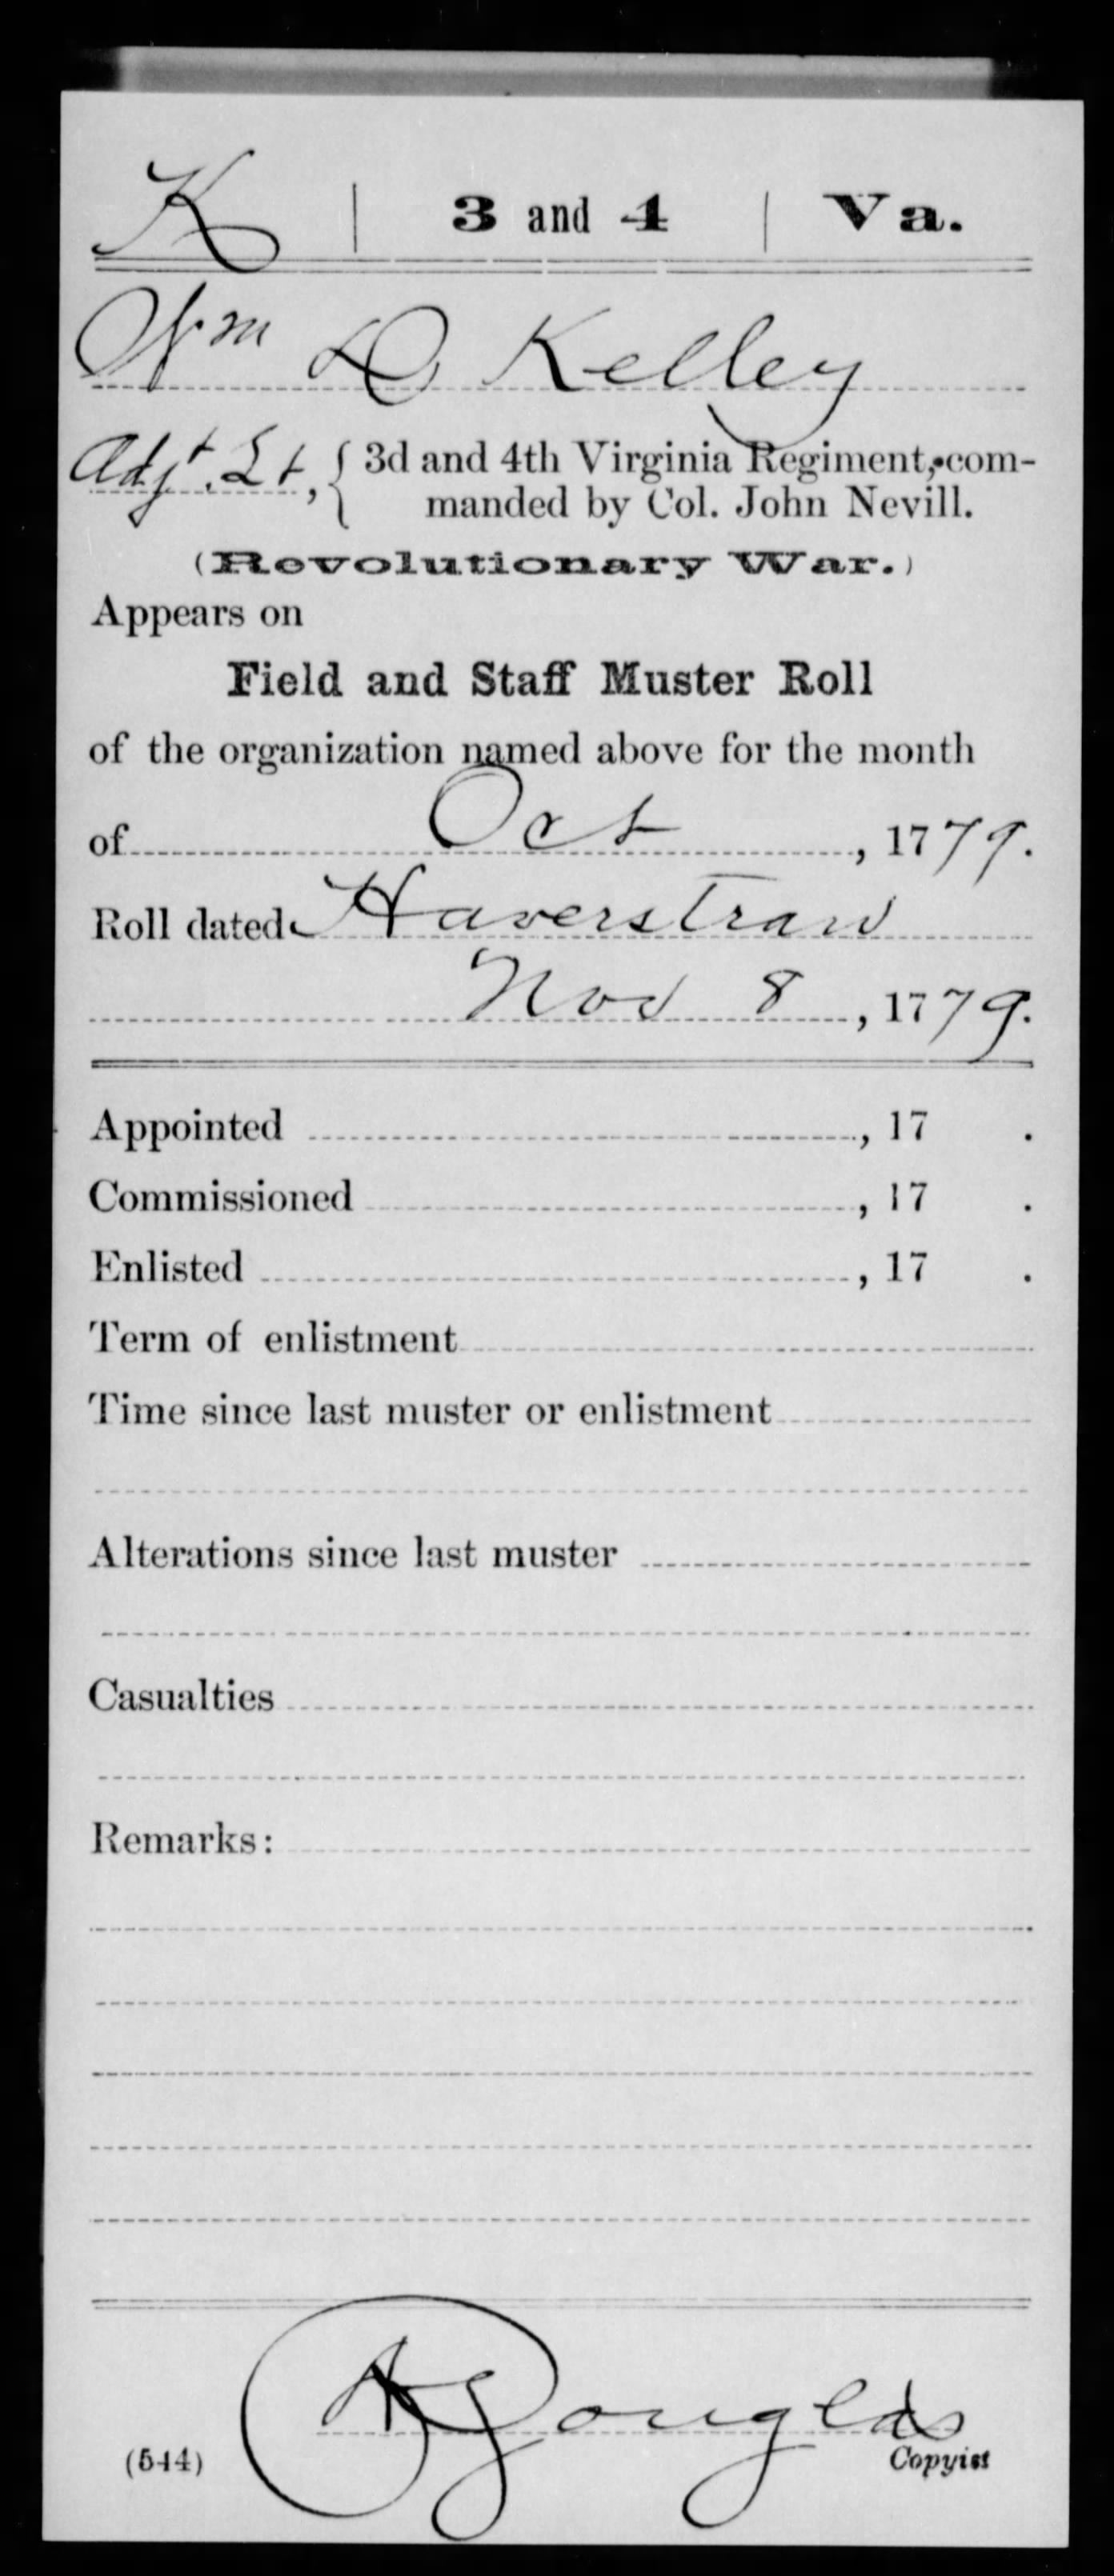 K | 3 and 4 | Va.
Wm D Kelley
Adjt. Lt, { 3d and 4th Virginia Regiment, com-
manded by Col. John Nevill.
(Revolutionary War.)
Appears on
Field and Staff Muster Roll
of the organization named above for the month
of Oct , 1779.
Roll dated Haverstraw
Nov 8 , 1779.
Appointed , 17 .
Commissioned , 17 .
Enlisted , 17 .
Term of enlistment
Time since last muster or enlistment
Alterations since last muster
Casualties
Remarks:
Douglas
(544) Copyist